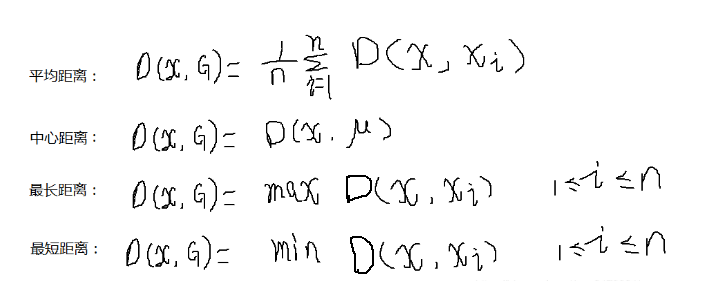 平均距离： D(x, G)= 1/n n∑i=1 D(x, xi)
中心距离： D(x, G)= D(x. μ)
最长距离： D(x, G)= max D(x, xi) 1≤i≤n
最短距离： D(x, G)= min D(x, xi) 1≤i≤n